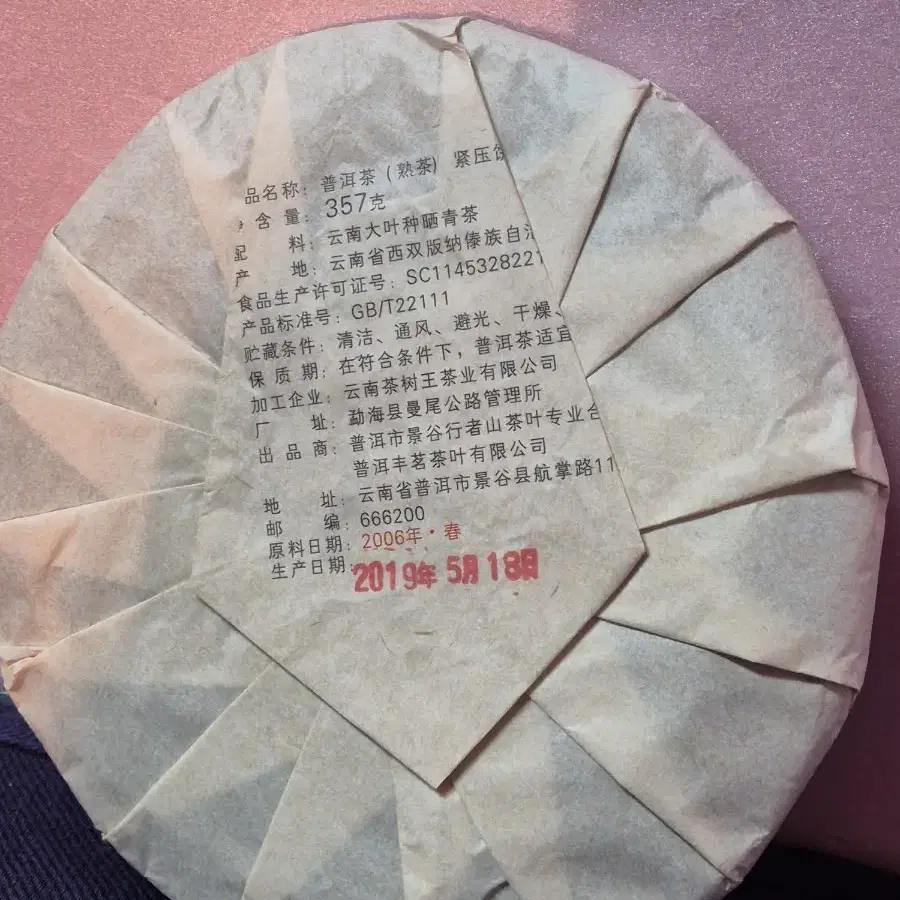 品名称：普洱茶（熟茶）紧压
含量：357克
配 料：云南大叶种晒青茶
产 地：云南省西双版纳傣族自治
食品生产许可证号：SC1145328221
产品标准号：GB/T22111
贮藏条件：清洁、通风、避光、干燥、
保 质 期：在符合条件下，普洱茶适宜
加工企业：云南茶树王茶业有限公司
厂 址：勐海县曼尾公路管理所
出 品 商：普洱市景谷行者山茶叶专业合
普洱丰茗茶叶有限公司
地 址：云南省普洱市景谷县航掌路11
邮 编：666200
原料日期：2006年·春
生产日期：2019年 5月 18日